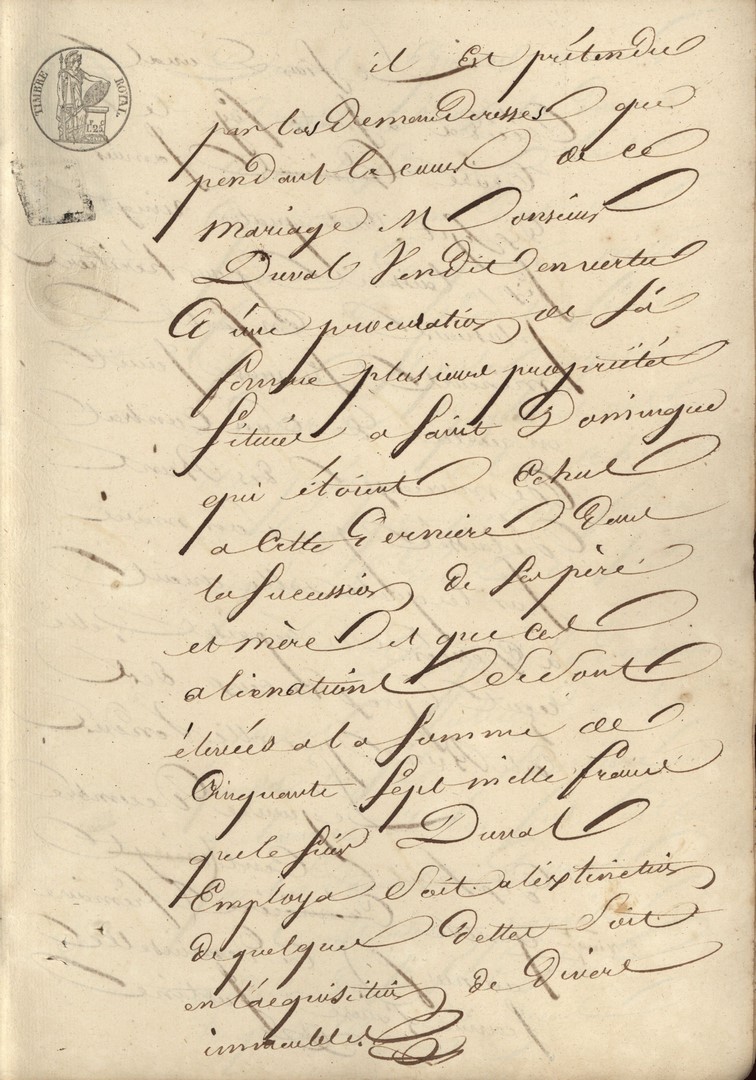 TIMBRE ROYAL
1F.25C
il Est prétendu
par les Demanderesses que
pendant le cours de ce
mariage Monsieur
Duval Vendit en vertu
d'une procuration de sa
femme plusieurs propriétés
située a Saint Domingue
qui étoient Echues
a cette derniere dans
la Succession de ses père
et mère et que ces
alienations se sont
élevées a la somme de
Cinquante Sept mille francs
que le Sieur Duval
Employa soit a l'extinction
de quelques dettes soit
en l'acquisition de Divers
immeubles